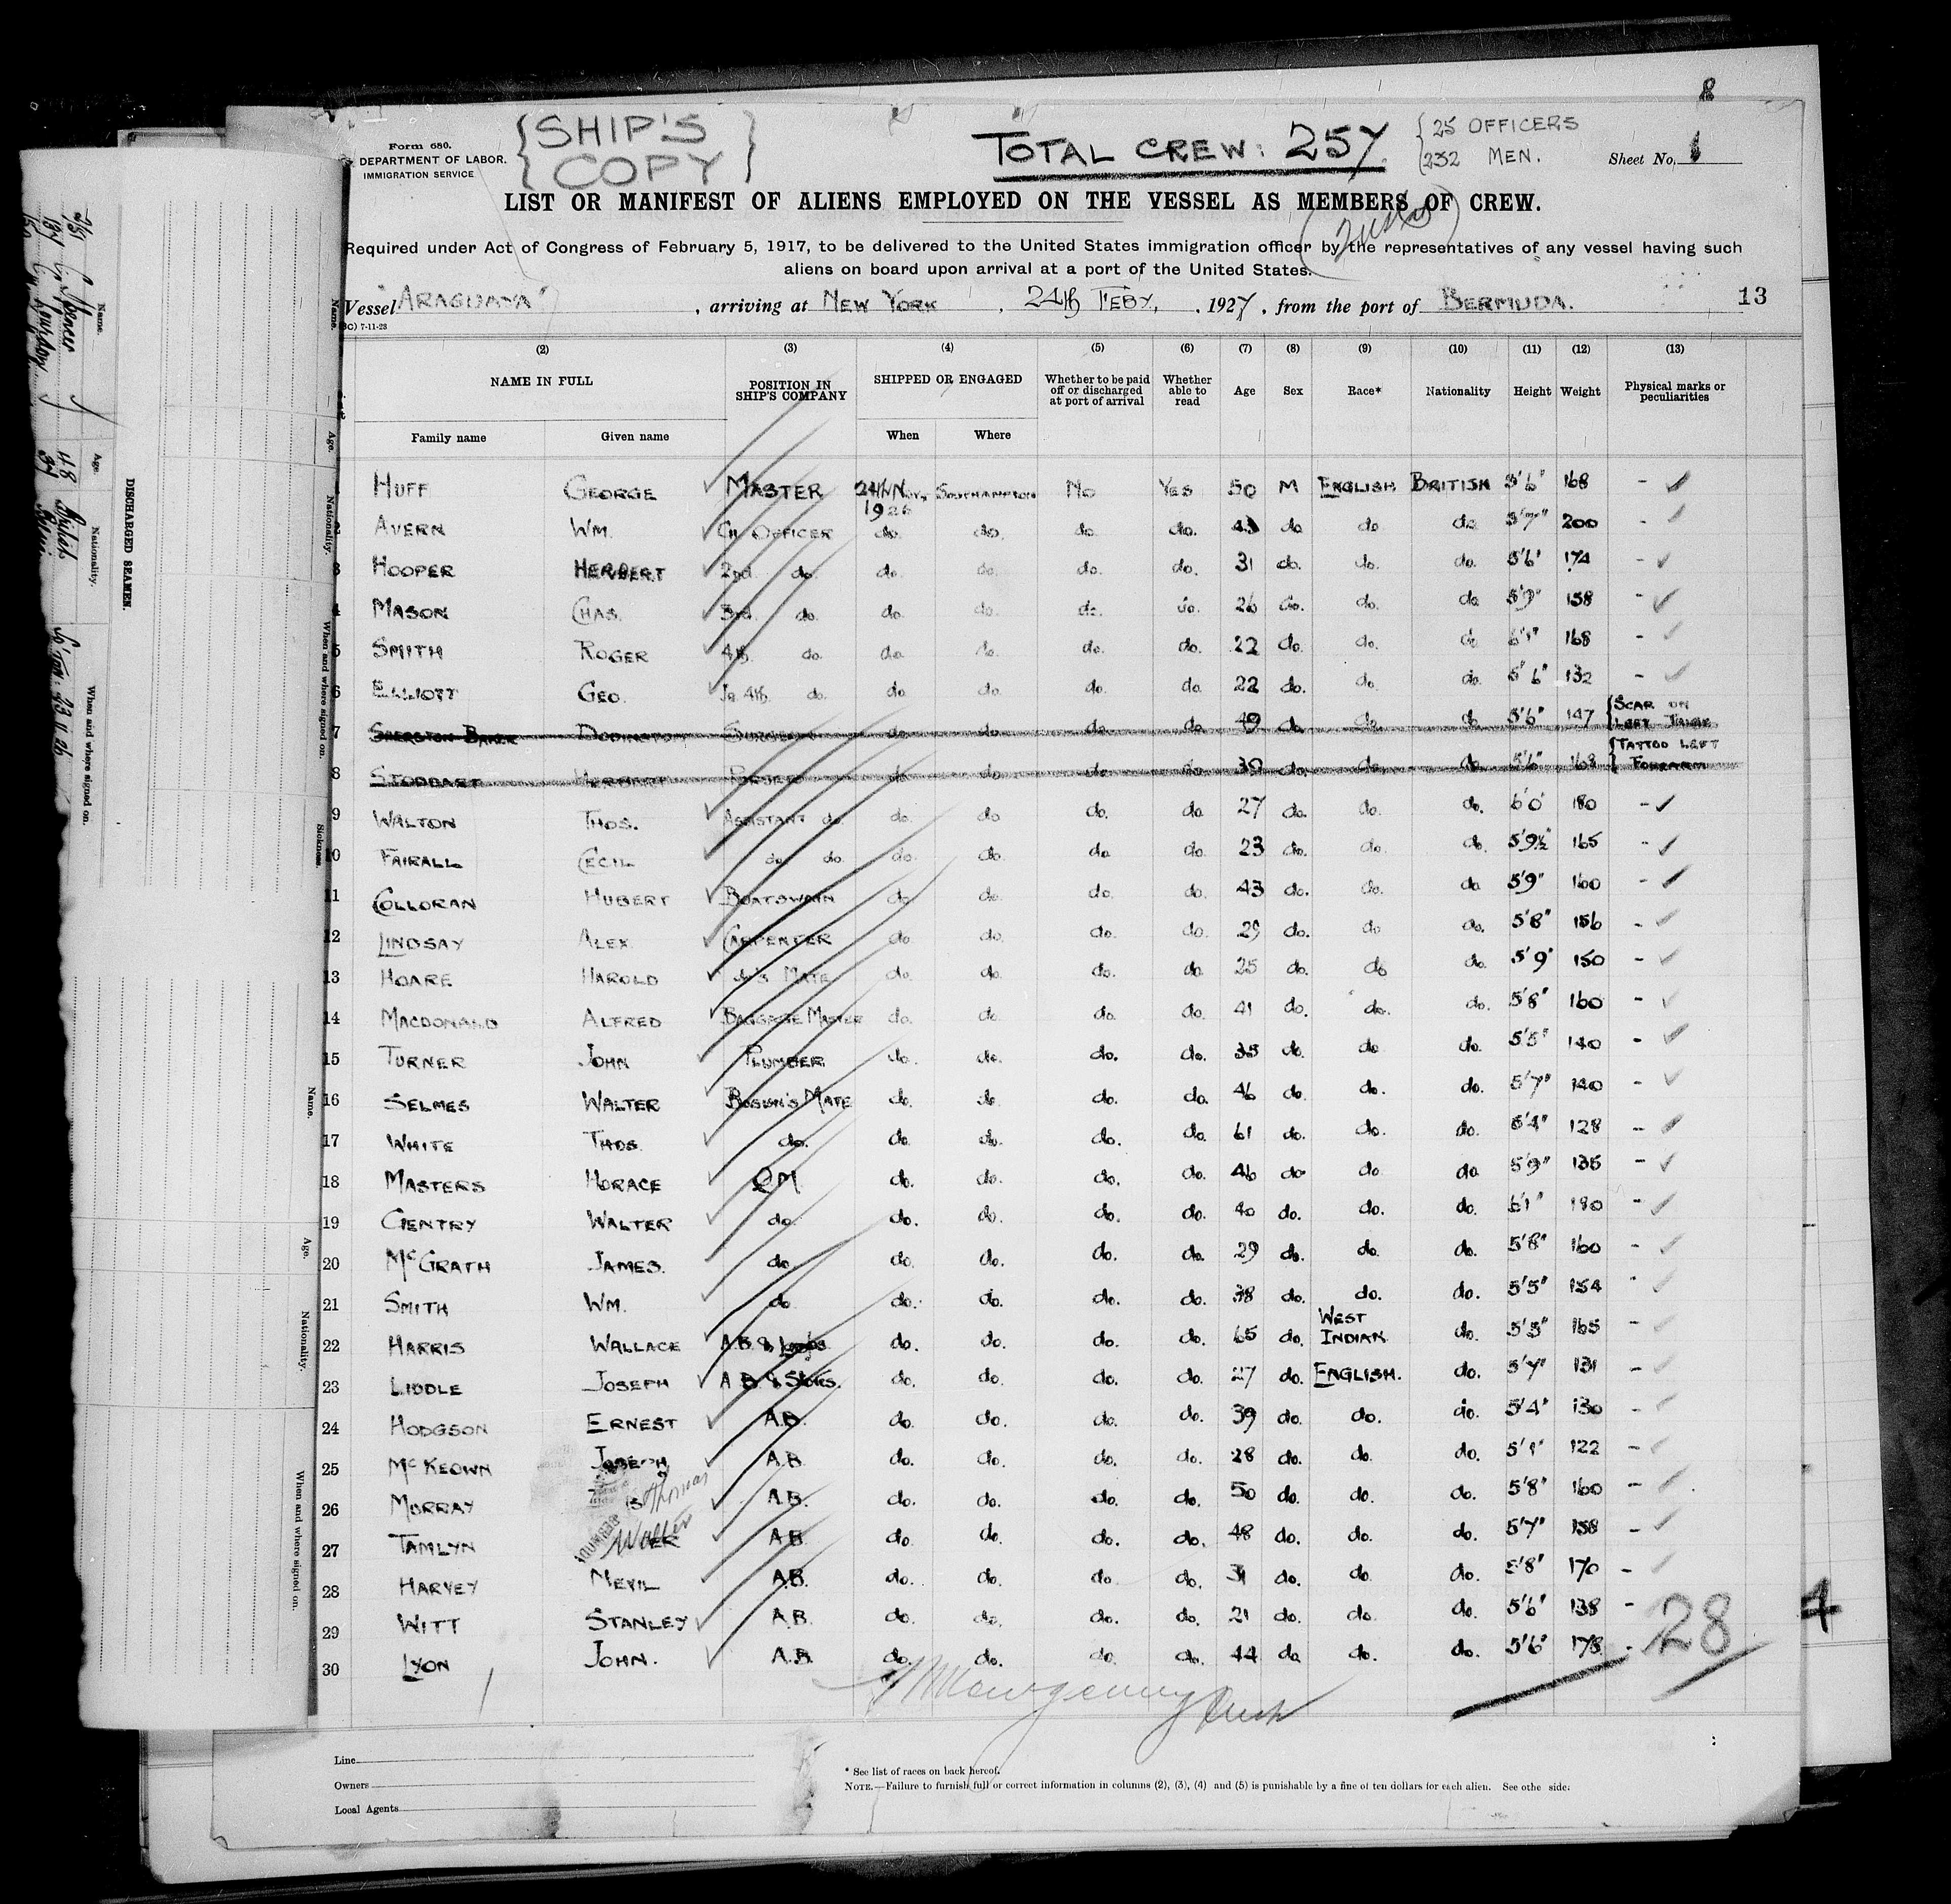 8
{SHIP'S COPY}
TOTAL CREW: 257 {25 OFFICERS
232 MEN.
Form 680.
DEPARTMENT OF LABOR.
IMMIGRATION SERVICE
Sheet No. 1
LIST OR MANIFEST OF ALIENS EMPLOYED ON THE VESSEL AS MEMBERS OF CREW.
Required under Act of Congress of February 5, 1917, to be delivered to the United States immigration officer by the representatives of any vessel having such
aliens on board upon arrival at a port of the United States.
Vessel "ARAGUAYA", arriving at NEW YORK, 24th FEBY, 1927, from the port of BERMUDA. 13
(2) (3) (4) (5) (6) (7) (8) (9) (10) (11) (12) (13)
NAME IN FULL POSITION IN SHIP'S COMPANY SHIPPED OR ENGAGED Whether to be paid off or discharged at port of arrival Whether able to read Age Sex Race* Nationality Height Weight Physical marks or peculiarities
Family name Given name When Where
HUFF GEORGE MASTER 24th Nov, 1926 SOUTHAMPTON No YES 50 M ENGLISH BRITISH 5'6" 168 -
2 AVERN WM. CH OFFICER do. do. do. do. 43 do do do 5'7" 200 -
3 HOOPER HERBERT 2nd do. do. do. do. do. 31 do. do. do. 5'6" 174 -
4 MASON CHAS. 3rd do. do. do. do. do. 26 do. do. do 5'9" 158 -
5 SMITH ROGER 4th do. do. do. do. do. 22 do. do. do 6'1" 168
6 ELLIOTT GEO. Jr 4th do. do. do. do. do. 22 do. do. do. 5'6" 132 -
7 SHERSTON BAKER DODINGTON SURGEON do. do. do. do. 49 do. do. do 5'6" 147 {SCAR ON LEFT
8 STODDART HERBERT PURSER do. do. do. do. 39 do. do. do. 5'6" 168 {TATTOO LEFT FOREARM
9 WALTON THOS. ASSISTANT do. do. do do. do. 27 do. do. do. 6'0" 180 -
10 FAIRALL CECIL do. do. do. do. do do. 23 do. do. do. 5'9½" 165 -
11 COLLORAN HUBERT BOATSWAIN do. do. do. do. 43 do. do. do 5'9" 160 -
12 LINDSAY ALEX CARPENTER do. do. do. do. 29 do. do do. 5'8" 156 -
13 HOARE HAROLD do's MATE do. do. do. do. 25 do. do do. 5'9" 150 -
14 MACDONALD ALFRED BAGGAGE MASTER do. do. do. do. 41 do. do. do. 5'8" 160 -
15 TURNER JOHN PLUMBER do. do. do. do. 35 do. do do. 5'5" 140 -
16 SELMES WALTER BOSUN'S MATE do. do. do. do. 46 do. do. do. 5'7" 140 -
17 WHITE THOS. do. do. do. do. do. 61 do. do. do. 5'4" 128 -
18 MASTERS HORACE QM do. do. do. do. 46 do do do 5'9" 135 -
19 GENTRY WALTER do. do. do. do. do. 40 do. do. do. 6'1" 180 -
20 McGRATH JAMES. do. do. do. do. do. 29 do. do. do. 5'8" 160 -
21 SMITH WM. do do. do. do. do. 38 do. do. do. 5'5" 154
22 HARRIS WALLACE A.B. & do. do. do. do. 65 do. WEST INDIAN do. 5'3" 165 -
23 LIDDLE JOSEPH A.B. & do. do. do. do. 27 do. ENGLISH. do. 5'7" 131 -
24 HODGSON ERNEST A.B. do. do. do. do. 39 do. do. do. 5'4" 130 -
25 McKEOWN JOSEPH A.B. do. do. do. do. 28 do. do. do. 5'1" 122 -
26 MURRAY Thomas A.B. do. do. do. do. 50 do. do. do. 5'8" 160 -
27 TAMLYN Walter A.B. do. do. do. do. 48 do. do. do. 5'7" 158 -
28 HARVEY NEVIL A.B. do. do. do do. 31 do. do do. 5'8" 170 -
29 WITT STANLEY A.B. do. do. do. do. 21 do. do. do. 5'6" 138 -
30 LYON JOHN. A.B. do. do. do. do. 44 do do. do. 5'6" 178 -
28
4
Line
Owners
Local Agents
* See list of races on back hereof.
NOTE.—Failure to furnish full or correct information in columns (2), (3), (4) and (5) is punishable by a fine of ten dollars for each alien. See othe side.
DISCHARGED SEAMEN.
Name. Age. Nationality. When and where signed on.
Spencer 48 British
Name. Age. Nationality. When and where signed on. Sickness.
Name. Age. Nationality. When and where signed on.